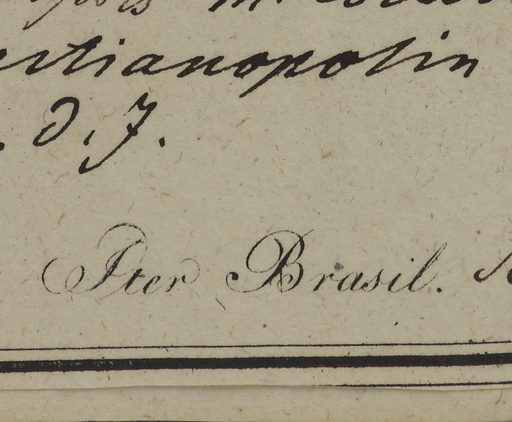 stianopolin
d. J.
Iter Brasil.